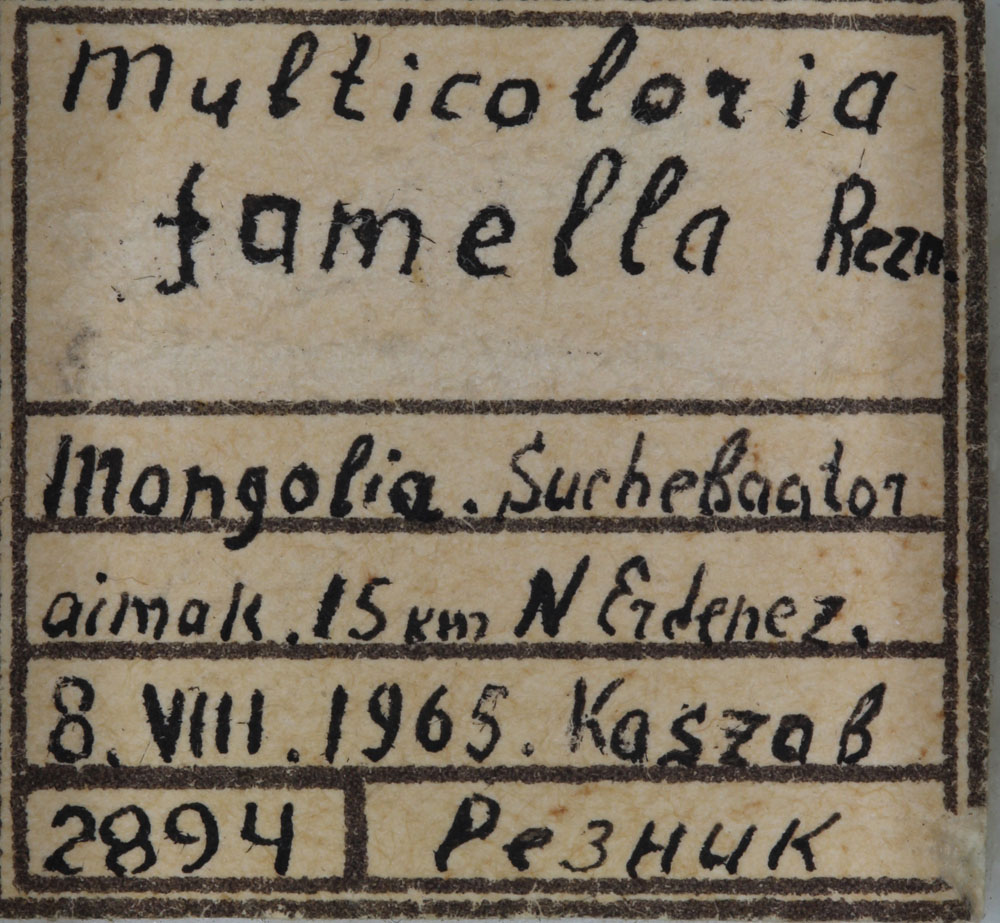 Multicoloria
famella Rezn.
Mongolia. Suchebaator
aimak. 15 km N Erdenez.
8. VIII. 1965. Kaszab
2894 Резник